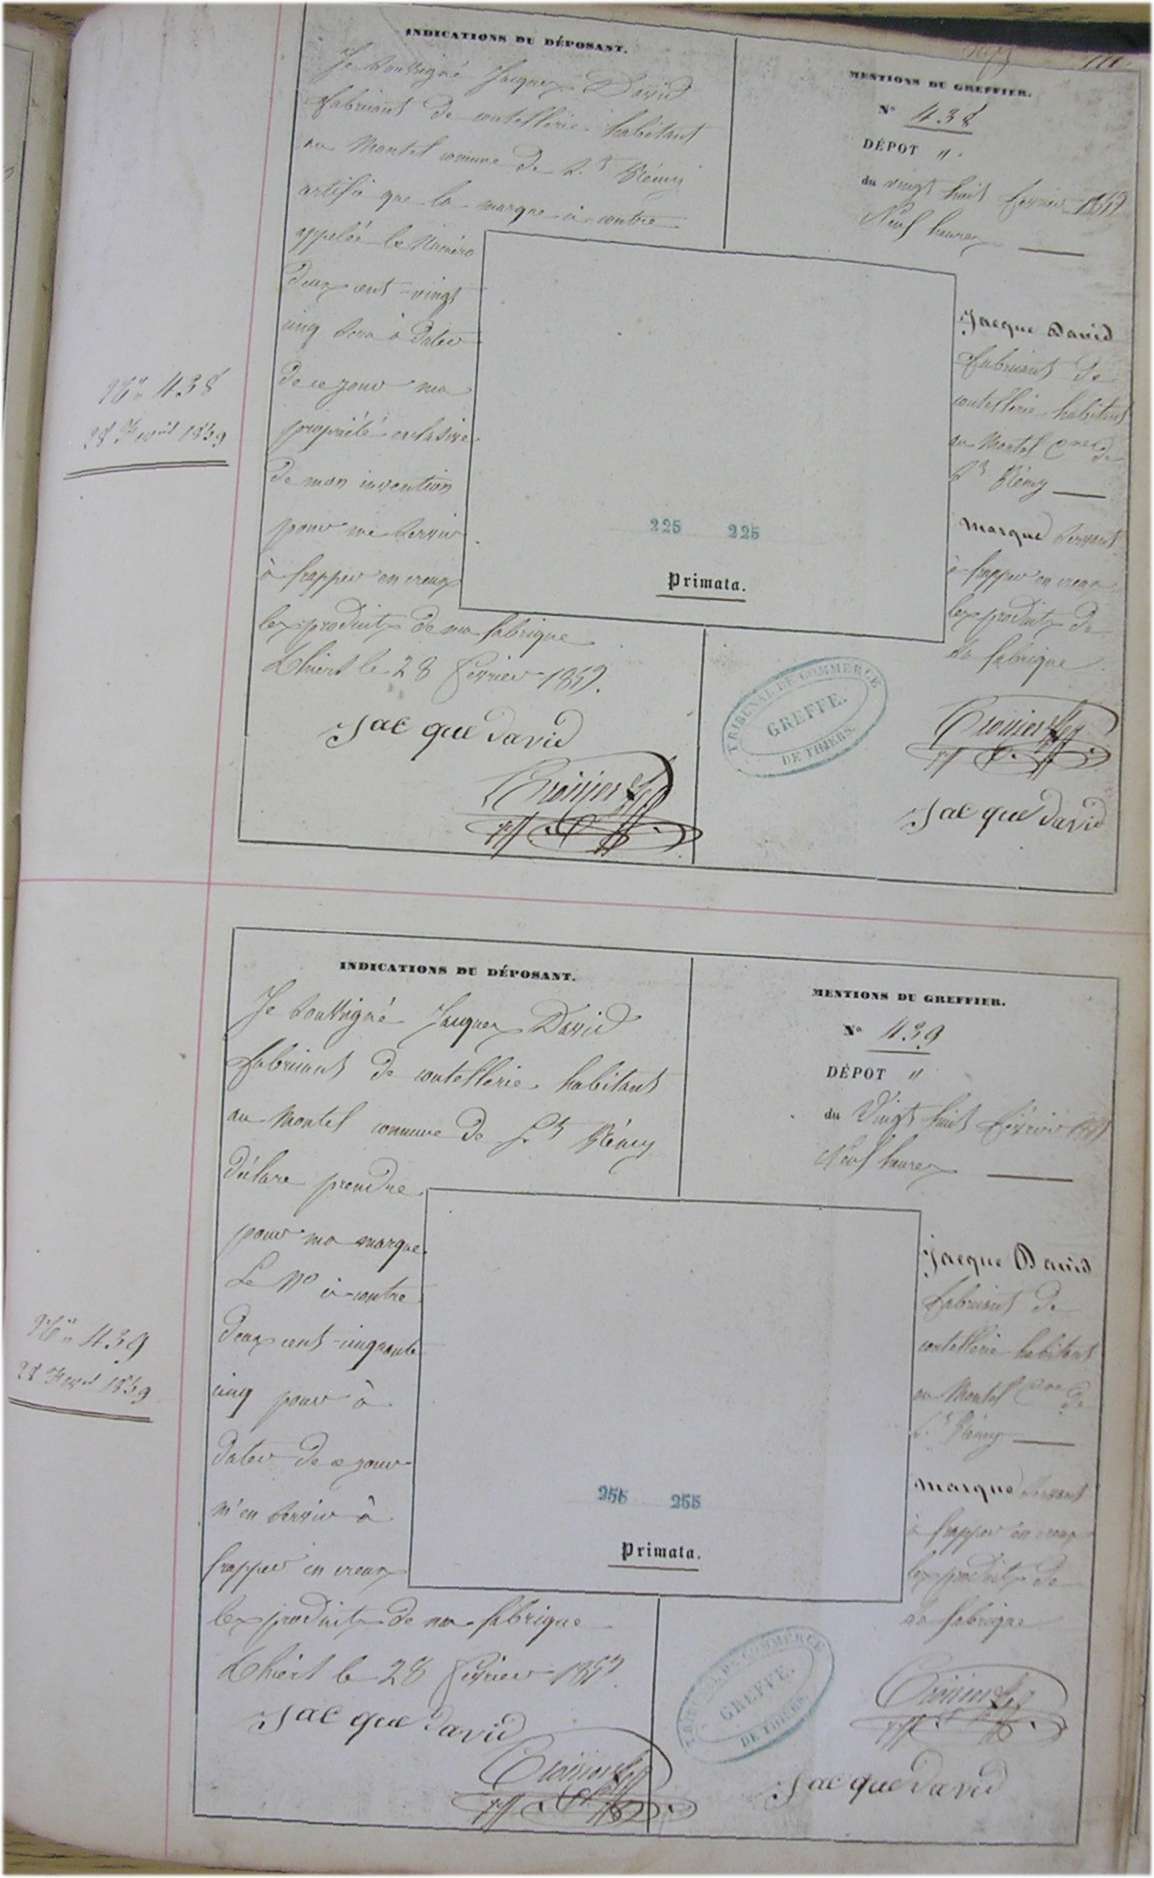 INDICATIONS DU DÉPOSANT.
Je soussigné Jacques David
fabricant de coutellerie habitant
au Montel commune de St Rémy
certifie que la marque ci contre
appelée le Numéro
deux cent vingt
cinq sera à dater
de ce jour ma
propriété exclusive
de mon invention
pour me servir
à frapper en creux
les produits de ma fabrique
Thiers le 28 février 1859.
Jacque david
MENTIONS DU GREFFIER.
No 438
DÉPOT "
du vingt huit février 1859
Neuf heures
Jacque David
fabricant de
coutellerie habitant
au Montel Cne de
St Rémy
marque servant
à frapper en creux
les produits de
sa fabrique
Jacque david
225 225
Primata.
TRIBUNAL DE COMMERCE
GREFFE.
DE THIERS.
No 438
28 Février 1859
INDICATIONS DU DÉPOSANT.
Je soussigné Jacques David
fabricant de coutellerie habitant
au Montel commune de St Rémy
déclare prendre
pour ma marque
Le No ci-contre
deux cent cinquante
cinq pour à
dater de ce jour
m'en servir à
frapper en creux
les produits de ma fabrique
Thiers le 28 février 1859.
Jacque david
MENTIONS DU GREFFIER.
No 439
DÉPOT "
du Vingt huit février 1859
Neuf heures
Jacque David
fabricant de
coutellerie habitant
au Montel Cne de
St Rémy
marque servant
à frapper en creux
les produits de
sa fabrique
Jacque david
255 255
Primata.
TRIBUNAL DE COMMERCE
GREFFE.
DE THIERS.
No 439
28 Février 1859